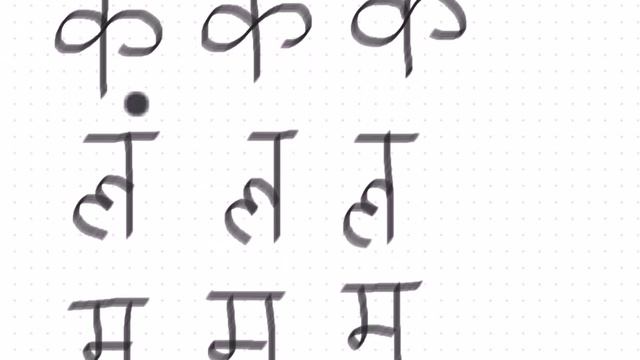 क क क
लं ल ल
म म म